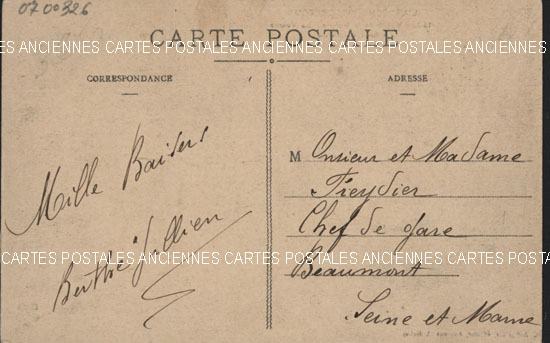 0700326
CARTE POSTALE
CARTES POSTALES ANCIENNES CARTES POSTALES ANCIENNES CARTES POSTALES ANCIENNES
CORRESPONDANCE
Mille Baisers
Berthe Jullien
ADRESSE
Monsieur et Madame
Freydier
Chef de gare
Beaumont
Seine et Marne
CARTES POSTALES ANCIENNES CARTES POSTALES ANCIENNES CARTES POSTALES ANCIENNES